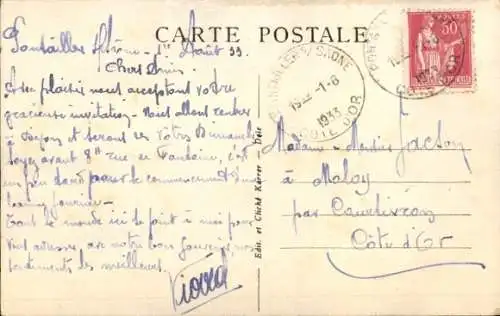 CARTE POSTALE
Pontailler s/Saône - 1er Août 33.
Chers Amis,
Avec plaisir nous acceptons votre
gracieuse invitation - Nous allons rentrer
à Dijon et serons les vôtres Dimanche
avant 8h rue de Fontaine, c'est
un peu tard pour le commencement d'une
bonne journée -
Tout le monde ici se joint à moi pour
vous adresser, avec notre bon souvenir, nos
sentiments les meilleurs.
Viard
Edit. et Cliché Karrer - Dôle
PONTAILLER S/ SAONE
19 -1-8
1933
COTE D'OR
50
Madame - Monsieur Jacson
à Moloy
par
Côte d'Or